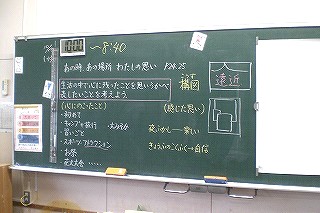 ～8:40
あの時、あの場所 わたしの思い P24.25
生活の中で心に残ったことを思いうかべ
表したいことを考えよう。
構図
遠近
(心にのこったこと)
・初めて
・キャンプや旅行
・習いごと
・スポーツやアトラクション
・お祭
・花火大会 ……
(感じた思い)
夜ふかし→楽しい
きょうふのこくふく→自信